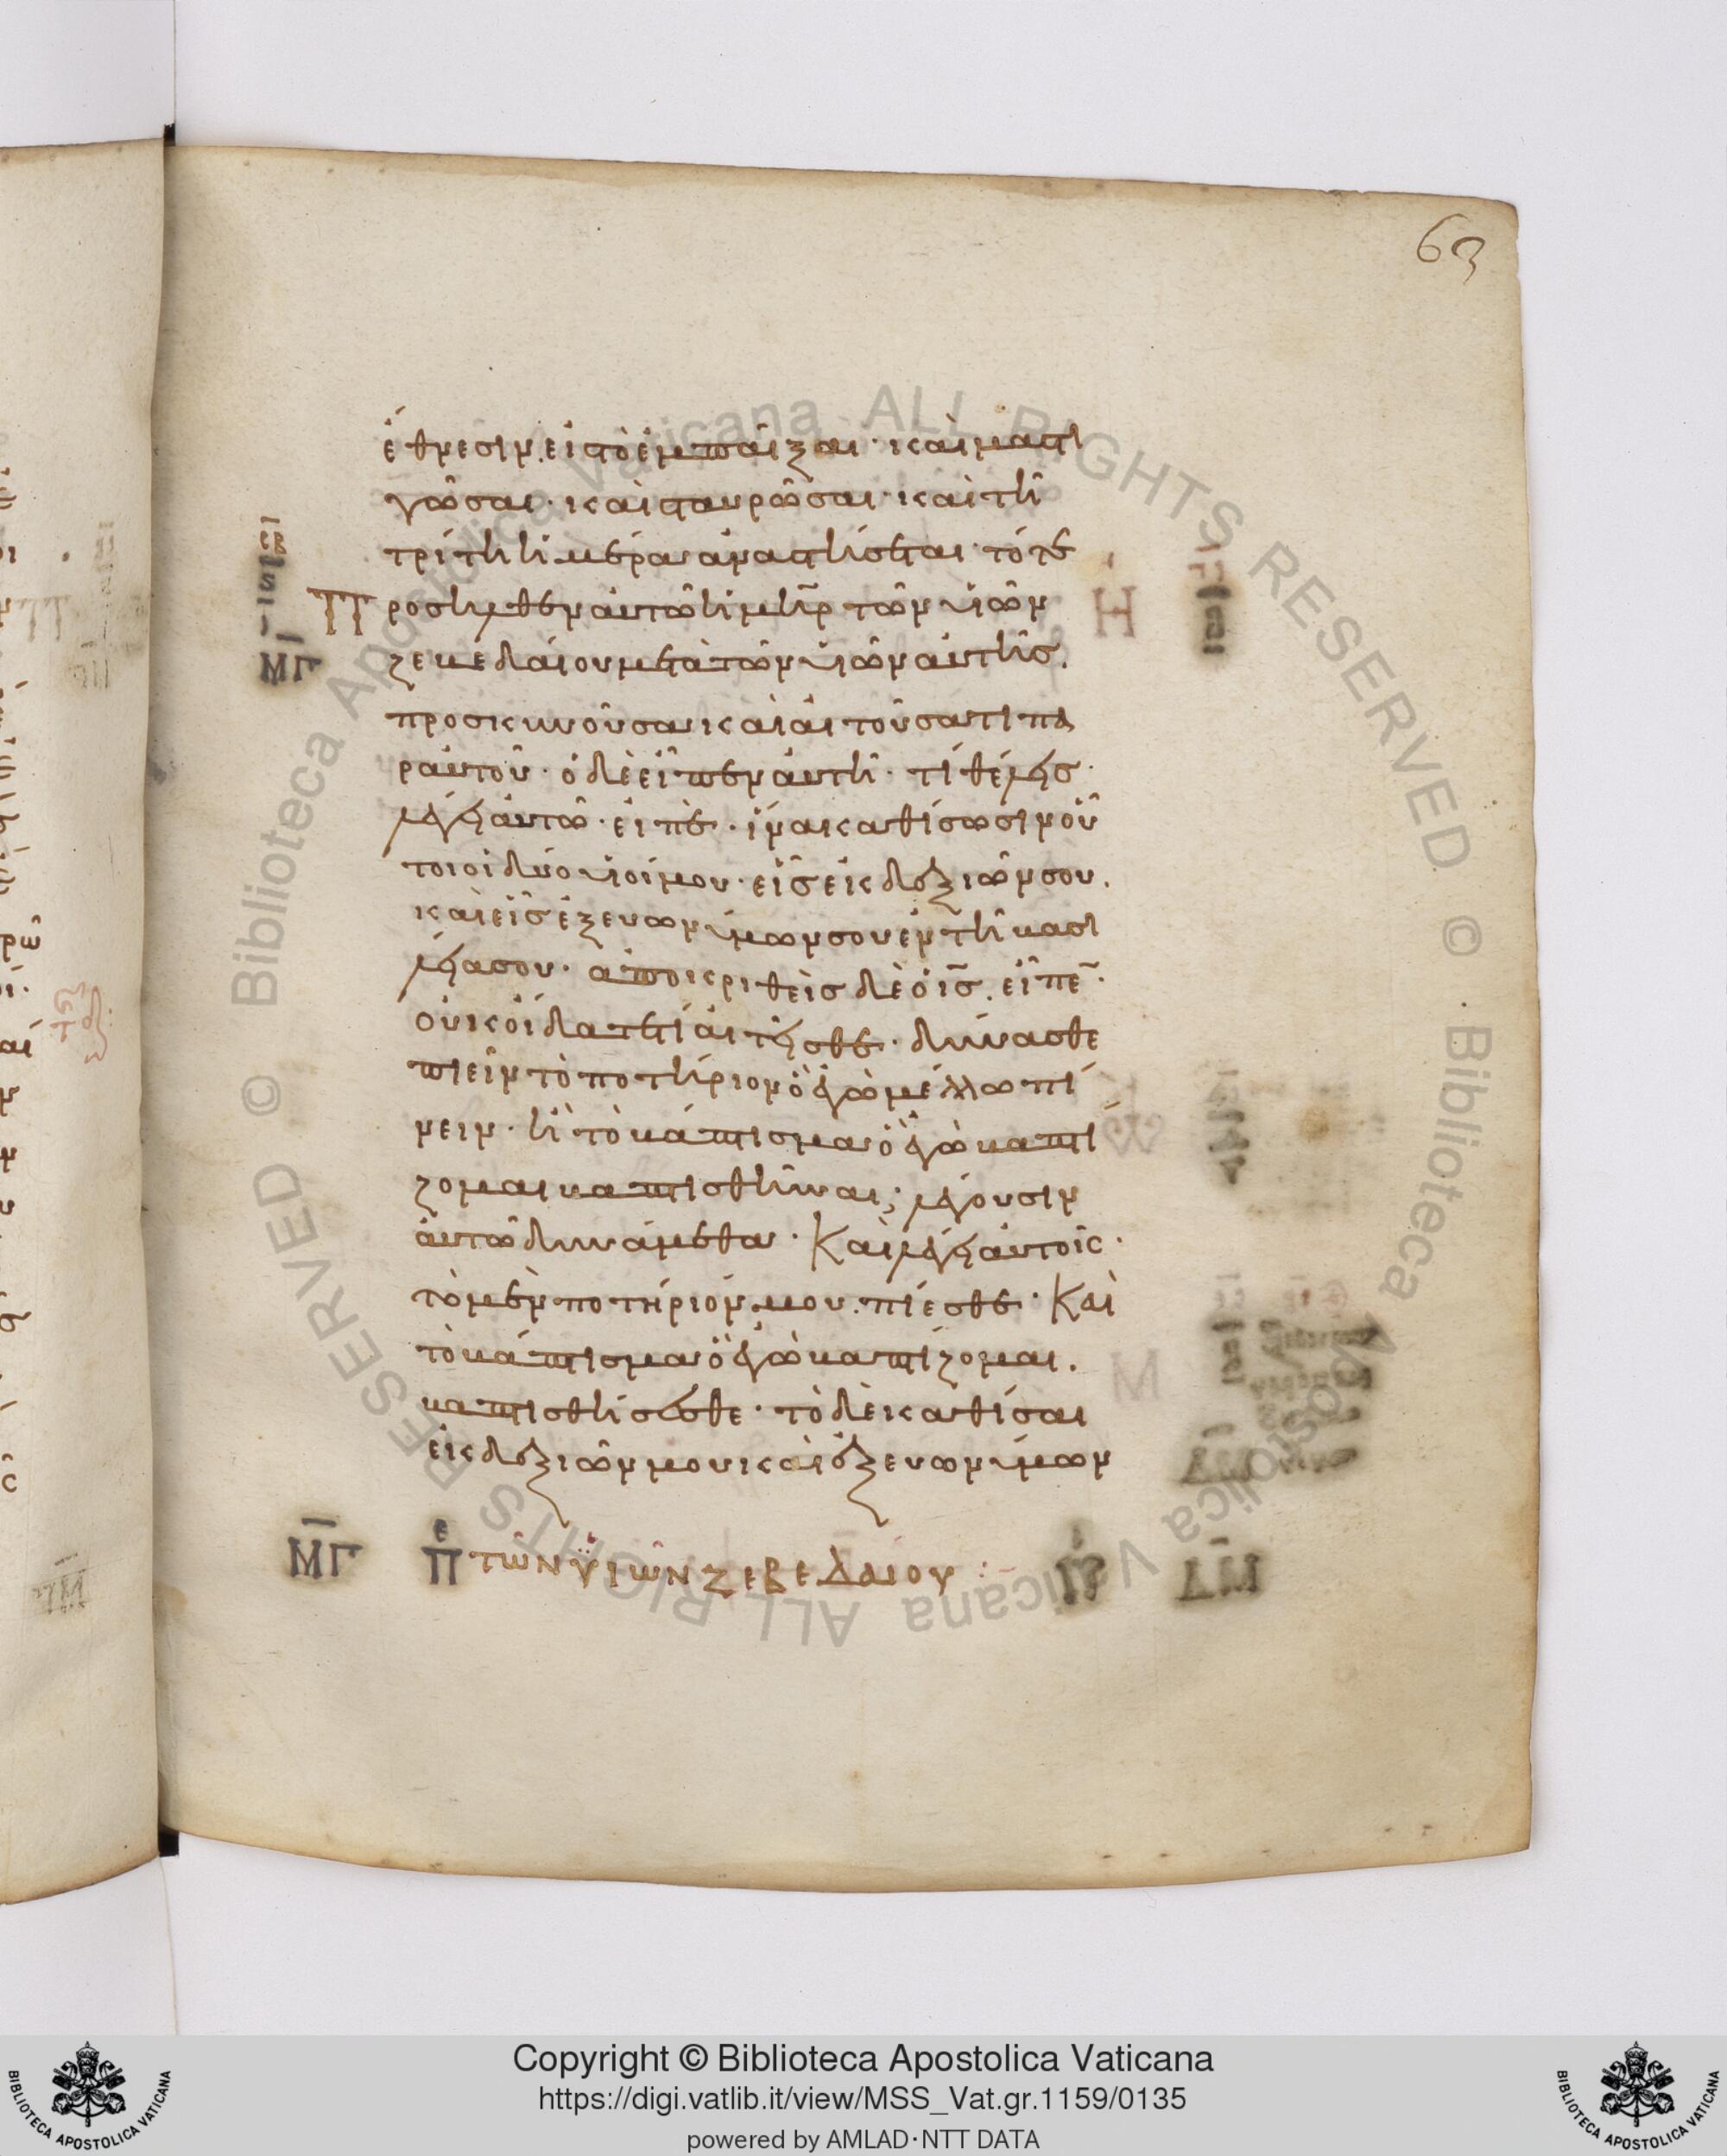 63
ἔθνεσιν. εἰς τὸ ἐμπαῖξαι· καὶ μαστι
γῶσαι· καὶ σταυρῶσαι· καὶ τῆ
τρίτη ἡμέρα ἀναστήσεται· τότε
Προσῆλθεν αὐτῶ ἡ μη̅ρ τῶν υἱῶν
ζεβεδαίου μετὰ τῶν υἱῶν αὐτῆς.
προσκυνοῦσα καὶ αἰτοῦσα τι πα
ρ αὐτοῦ· ὁ δὲ εἶπεν αὐτῆ· τί θέλεις·
λέγει αὐτῶ· εἰπὲ· ἵνα καθίσωσιν οὗ
τοι οἱ δύο υἱοί μου· εἷς ἐκ δεξιῶν σου.
καὶ εἷς ἐξ εὐωνύμων σου ἐν τῆ βασι
λείασου· ἀποκριθεὶς δὲ ὁ ι̅ς̅. εἶπε̅·
οὐκ οἴδατε τί αἰτεῖσθε· δύνασθε
πιεῖν τὸ ποτήριον ὃ ἐγὼ μέλλω πί
νειν· ἢ τὸ βάπτισμα ὃ ἐγὼ βαπτί
ζομαι βαπτισθῆναι; λέγουσιν
αὐτῶ δυνάμεθα· Καὶ λέγει αὐτοῖς·
τὸ μὲν ποτήριόν μου. πίεσθε· Καὶ
τὸ βάπτισμα ὃ ἐγὼ βαπτίζομαι.
βαπτισθήσεσθε· τὸ δὲ καθίσαι
ἐκ δεξιῶν μου καὶ ἐξ εὐωνύμων
Μ̅Γ πε τῶν υἱῶν ζεβεδαίου :
ς̅β
Μ̅Γ
Copyright © Biblioteca Apostolica Vaticana
https://digi.vatlib.it/view/MSS_Vat.gr.1159/0135
powered by AMLAD·NTT DATA
BIBLIOTECA APOSTOLICA VATICANA
BIBLIOTECA APOSTOLICA VATICANA
© Biblioteca Apostolica Vaticana ALL RIGHTS RESERVED © Biblioteca Apostolica Vaticana ALL RIGHTS RESERVED